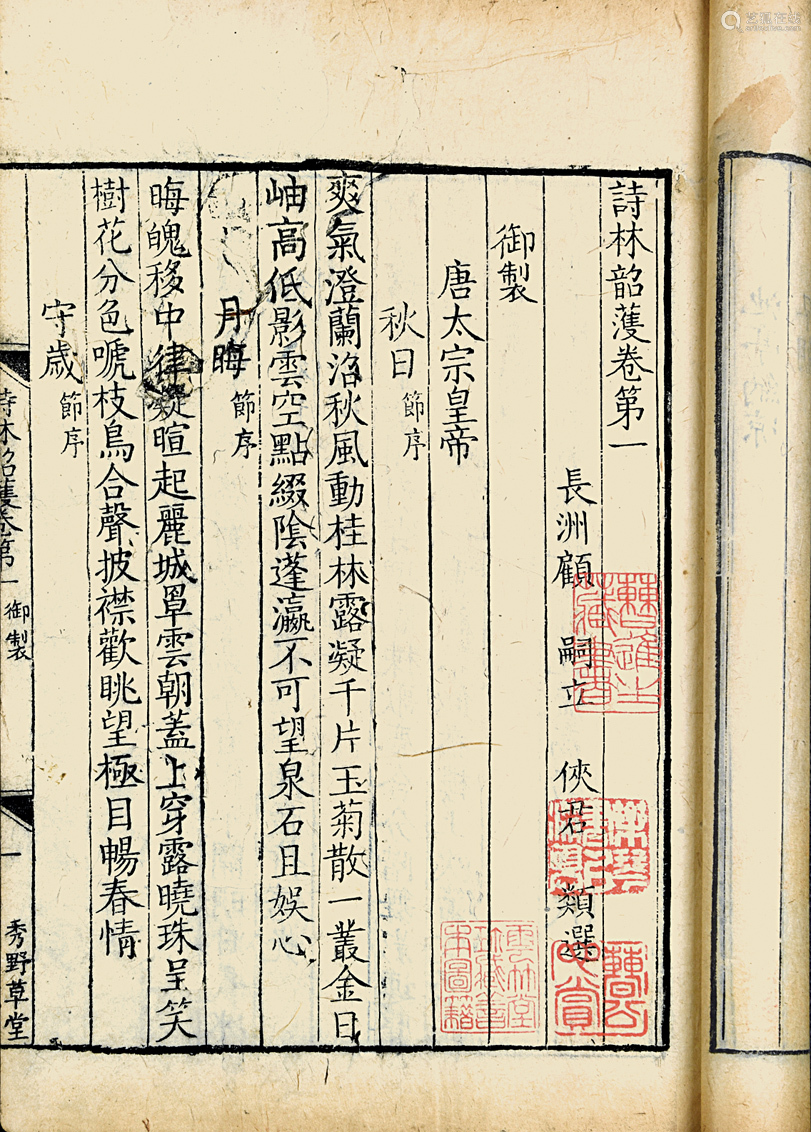 詩林韶䕶卷第一
長洲顧 嗣立 俠君 類選
御製
唐太宗皇帝
秋日 節序
爽氣澄蘭沼秋風動桂林露凝千片玉菊散一叢金日
岫高低影雲空點綴陰蓬瀛不可望泉石且娛心
月晦 節序
晦魄移中律凝暄起麗城罩雲朝蓋上穿露曉珠呈笑
樹花分色嗁枝鳥合聲披襟歡眺望極目暢春情
守歲 節序
詩林韶䕶卷第一 御製 一 秀野草堂